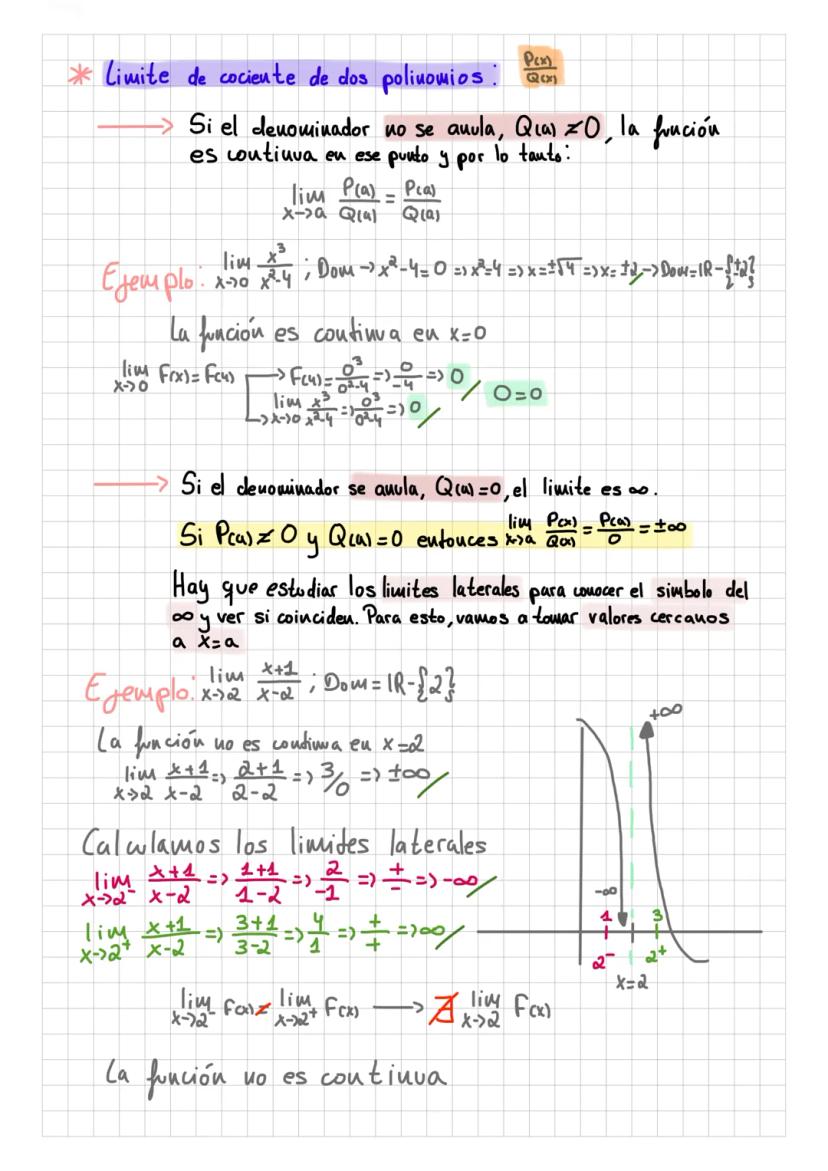 * Limite de cociente de dos polinomios: P(x)/Q(x)
→ Si el denominador no se anula, Q(a) ≠ 0, la función
es continua en ese punto y por lo tanto:
lim x→a P(a)/Q(a) = P(a)/Q(a)
Ejemplo: lim x→0 x³/x²-4 ; Dom → x²-4=0 => x²=4 => x=±√4 => x=±2 → Dom=IR-{±2}
La función es continua en x=0
lim x→0 F(x)=F(a) → F(a)=0³/0²-4 => 0/-4 => 0
→ lim x→0 x³/x²-4 => 0³/0²-4 => 0 / 0=0
→ Si el denominador se anula, Q(a)=0, el limite es ∞.
Si P(a) ≠ 0 y Q(a)=0 entonces lim x→a P(x)/Q(x) = P(a)/0 = ±∞
Hay que estudiar los limites laterales para conocer el simbolo del
∞ y ver si coinciden. Para esto, vamos a tomar valores cercanos
a x=a
Ejemplo: lim x→2 x+1/x-2 ; Dom=IR-{2}
La función no es continua en x=2
lim x→2 x+1/x-2 => 2+1/2-2 => 3/0 => ±∞
Calculamos los limides laterales
lim x→2⁻ x+1/x-2 => 1+1/1-2 => 2/-1 => +/- => -∞
lim x→2⁺ x+1/x-2 => 3+1/3-2 => 4/1 => +/+ => ∞
+∞
-∞
1 3
2⁻ 2⁺
x=2
lim x→2⁻ F(x) ≠ lim x→2⁺ F(x) → ∄ lim x→2 F(x)
La función no es continua